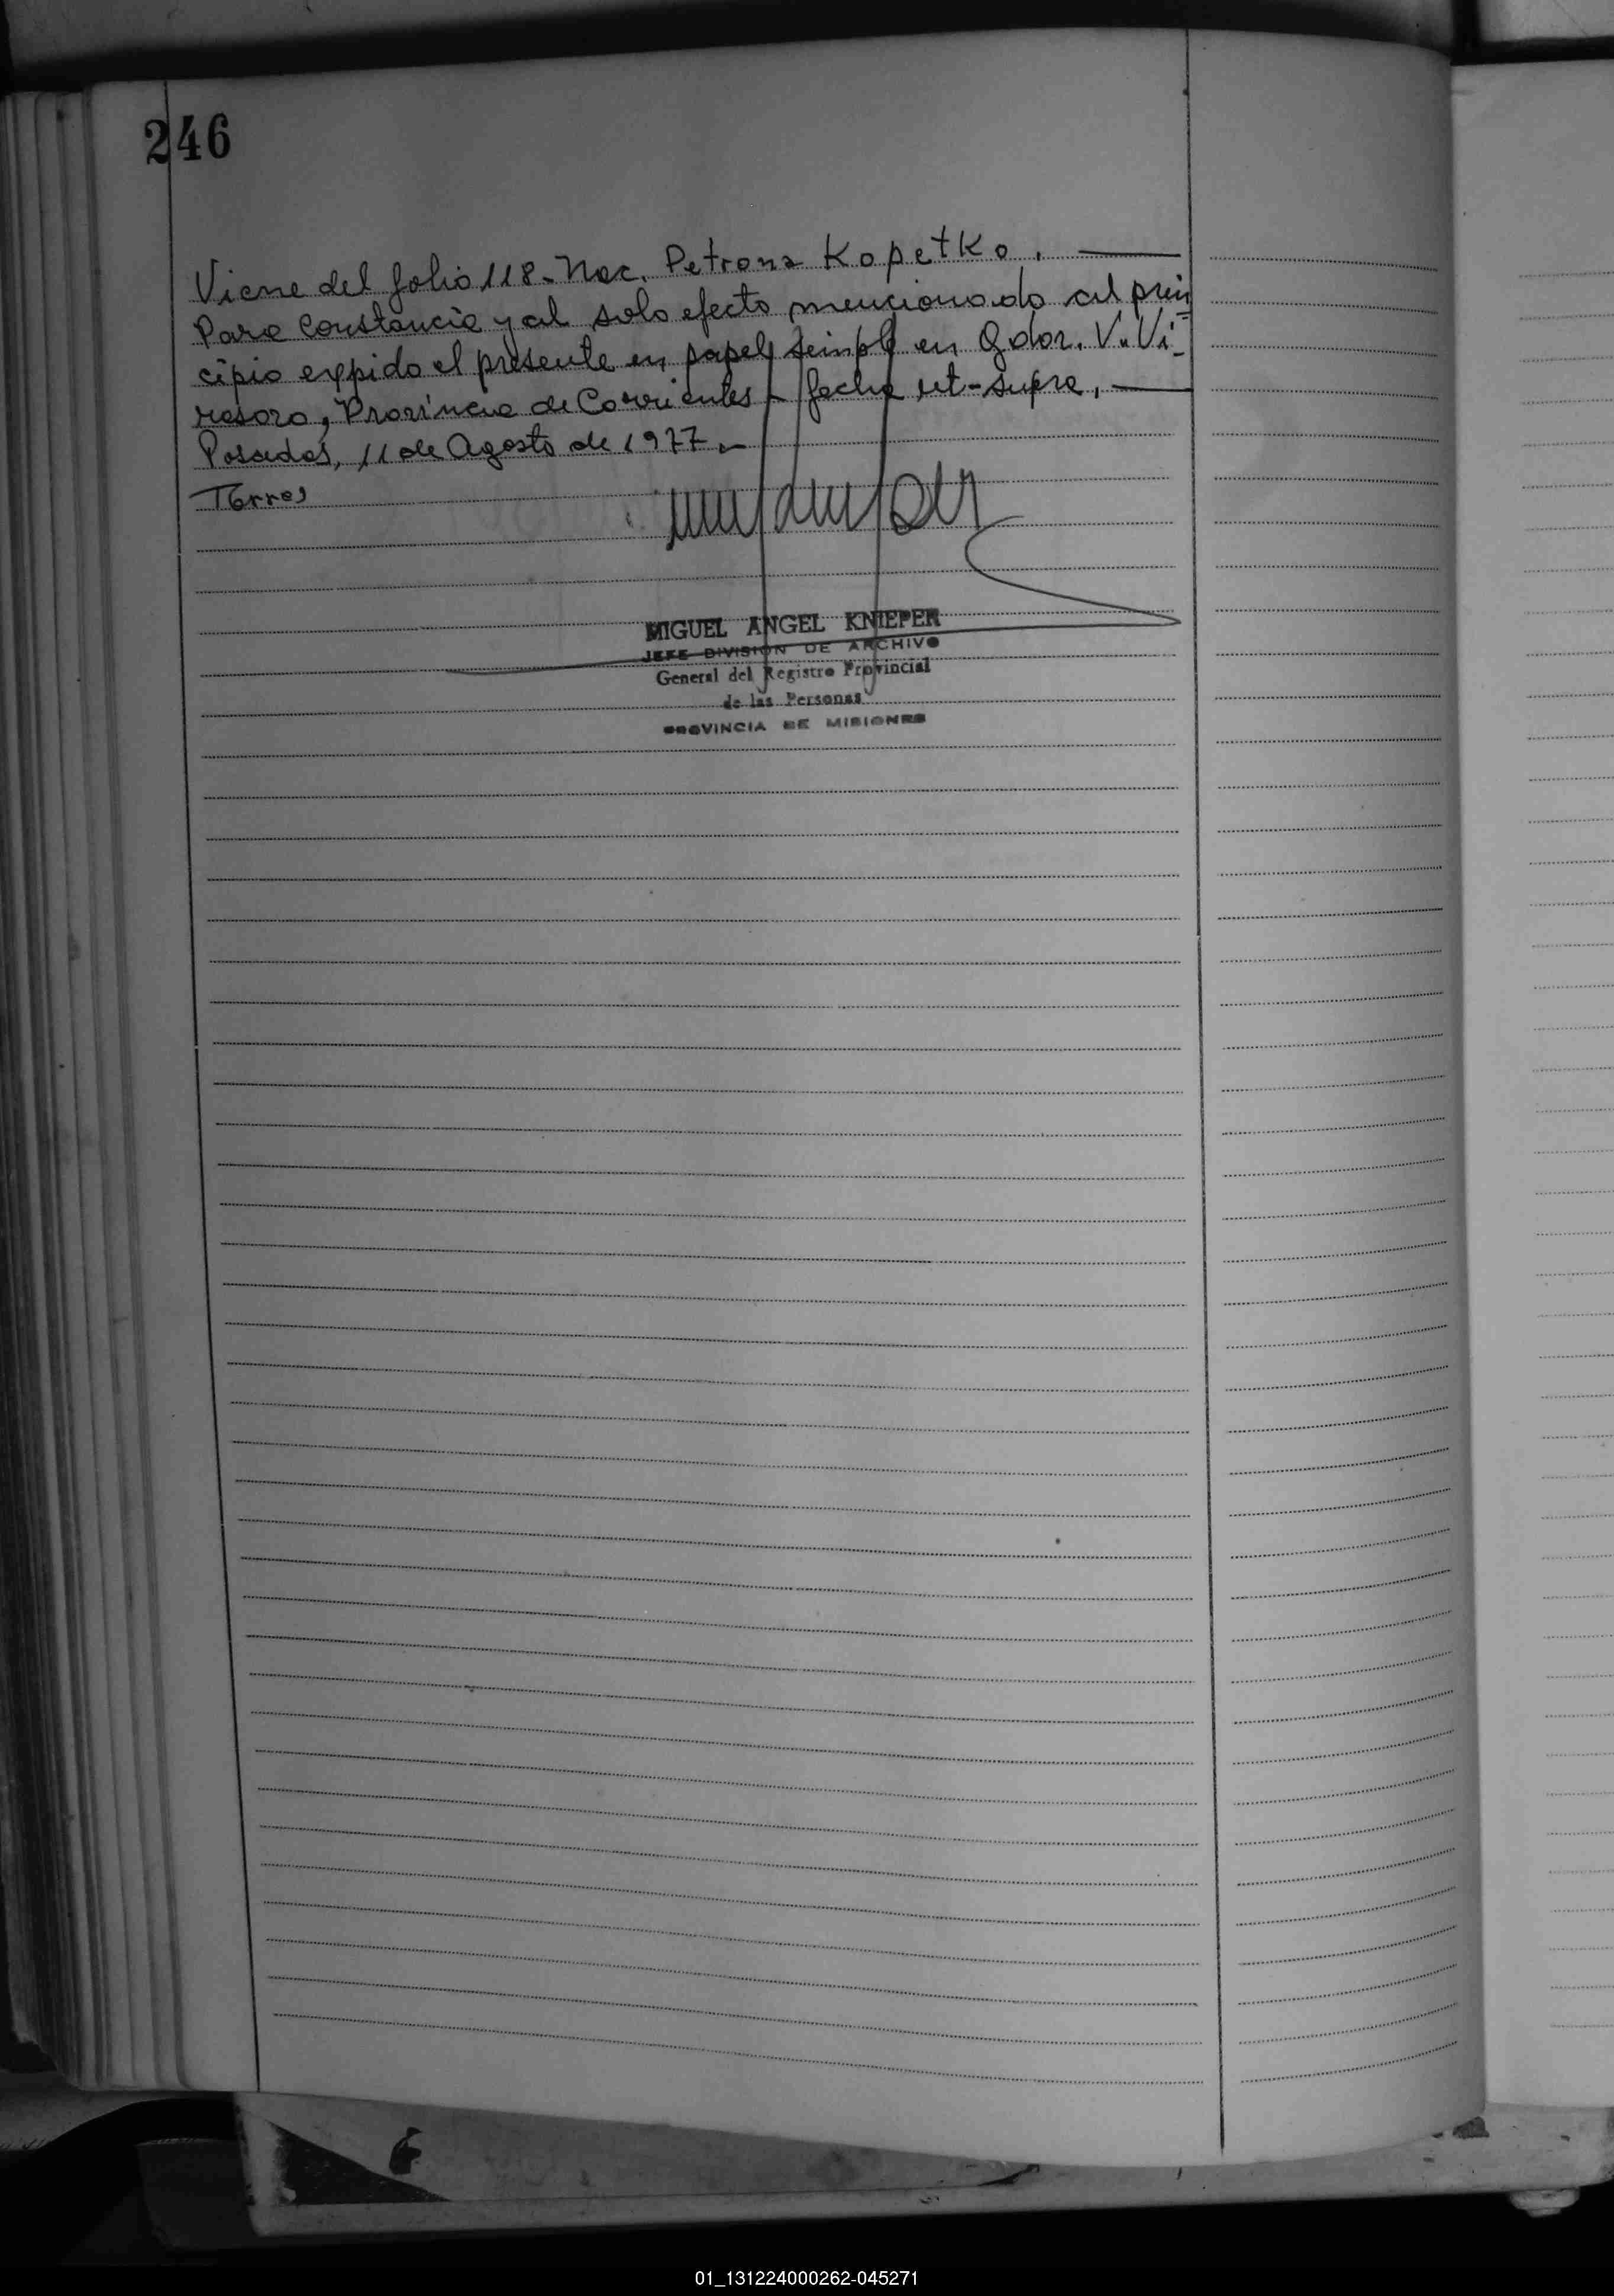 246
Viene del folio 118 - Nac. Petrona Kopetko. —
Para constancia y al solo efecto mencionado al prin
cipio expido el presente en papel simple en Gdor. V. Vi-
rasoro, Provincia de Corrientes - fecha ut-supra. —
Posadas, 11 de Agosto de 1977 -
Torres
MIGUEL ANGEL KNIEPER
JEFE DIVISION DE ARCHIVO
General del Registro Provincial
de las Personas
PROVINCIA DE MISIONES
01_131224000262-045271